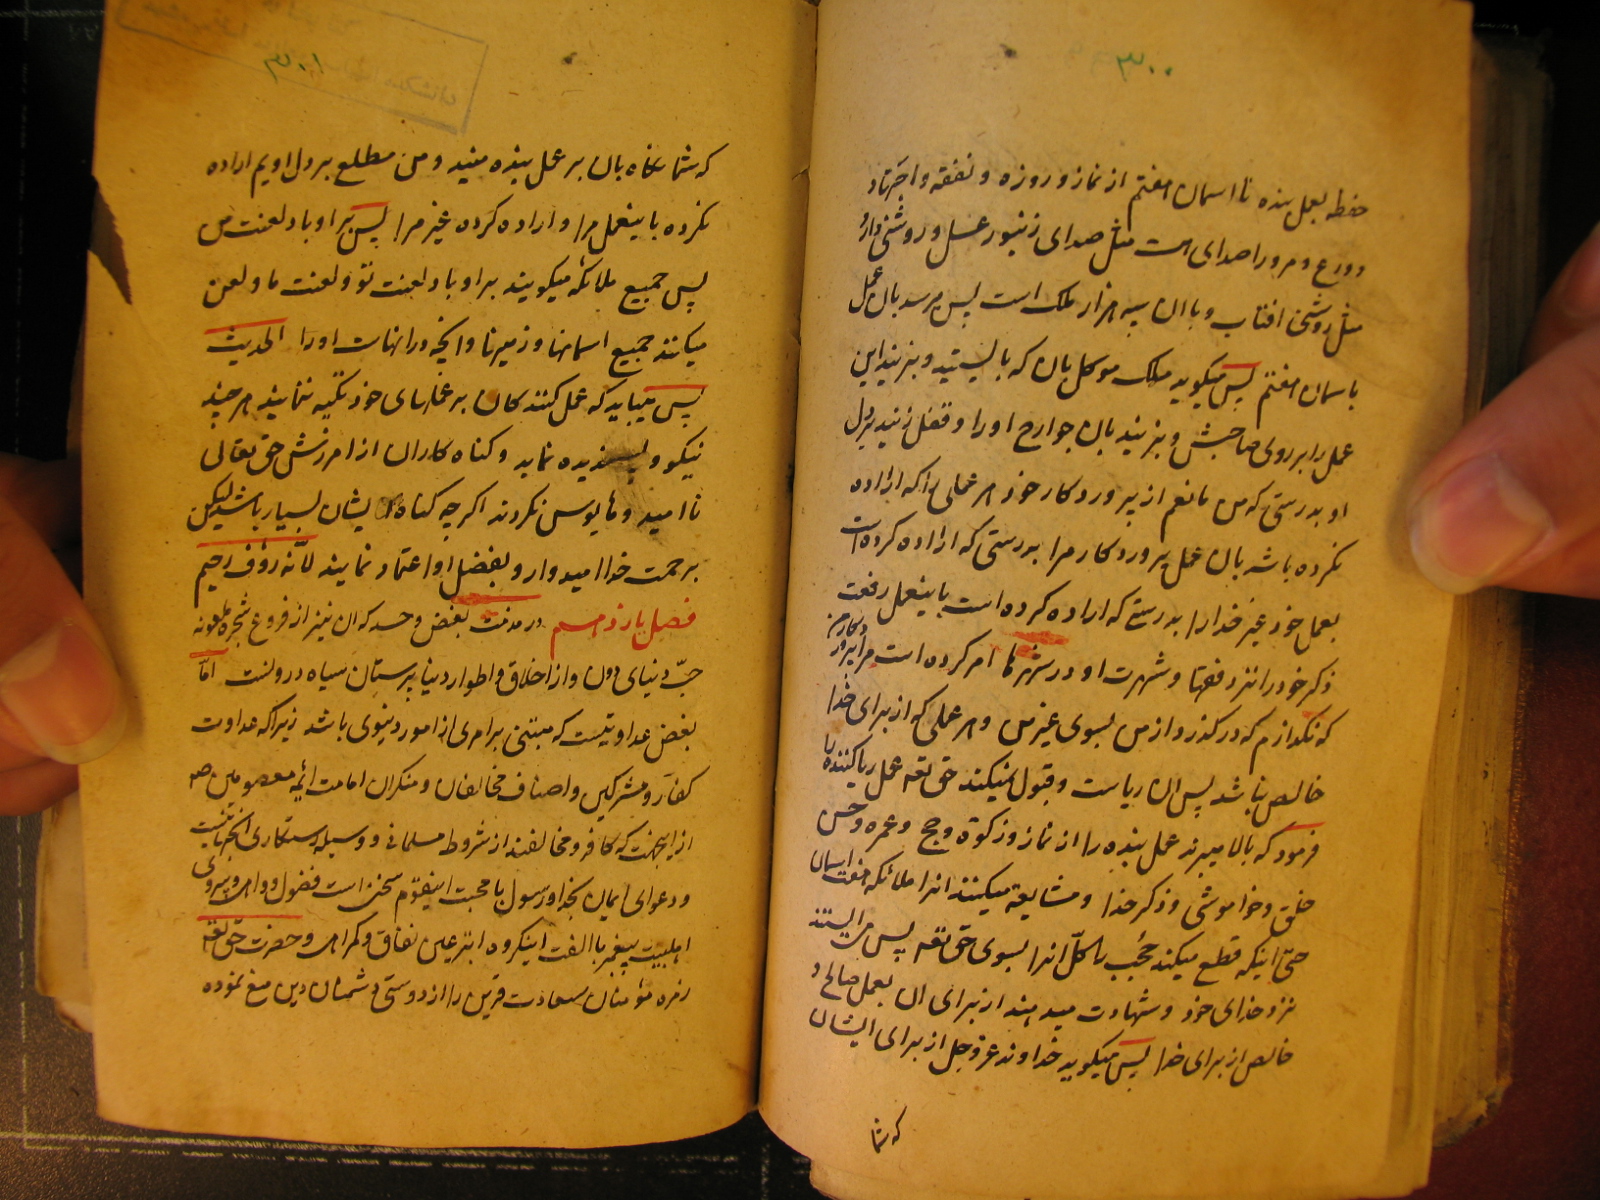 ۳۰۰
حفظه بعمل بنده تا اسمان هفتم از نماز و روزه و نفقه و اجتهاد
و ورع و مر ورا صدای هست مثل صدای زنبور عسل و روشنی دارد
مثل روشنی افتاب و با ان سه هزار ملک است پس میرسد بان عمل
باسمان هفتم پس میکوید ملک موکل بان که بایستید و بزنید این
عمل را بر روی صاحبش و بزنید بان جوارح او را و قفل زنید بردل
او بدرستی که من مانعم از پروردکار خود هر عملی را که اراده
نکرده باشد بان عمل پروردکار مرا بدرستی که اراده کرده است
بعمل خود غیر خدا را بدرستی که اراده کرده است باینعمل رفعت
ذکر خود را نزد فقها و شهرت او در شهرها امر کرده است مرا پرور دکار من
که نکذارم که در کذرد از من بسوی غیر من و هر عملی که از برای خدا
خالص نباشد پس ان ریاست و قبول نمیکند حق تعه عمل ریا کننده را
فرمود که بالا میبرند عمل بنده را از نماز و زکوة و حج و عمره و حسن
خلق و خواموشی و ذکر خدا و مشایعة میکنند انرا ملائکه هفت اسمان
حتی اینکه قطع میکند حجب را کل انرا بسوی حق تعه پس می ایستند
نزد خدای خود و شهادت میدهند از برای ان بعمل صالح و
خالص از برای خدا پس میکوید خداوند عز و جل از برای ایشان
که شما
۳۰۱
که شما نکاه بان بر عمل بنده منید و من مطلع بر دل اویم اراده
نکرده باینعمل مرا و اراده کرده غیر مرا پس بر او باد لعنت من
پس جمیع ملائکه میکویند بر او باد لعنت تو و لعنت ما و لعن
میکنند جمیع اسمانها و زمینها و انچه در انهاست او را الحدیث
پس میباید که عمل کنندکان بر عملهای خود تکیه ننمایند هر چند
نیکو و پسندیده نماید و کناه کاران از امرزش حق تعالی
نا امید و مایوس نکردند اکرچه کناه ایشان بسیار باشد لیکن
برحمت خدا امیدوار و بفضل او اعتماد نمایند لانه رؤف رحیم
فصل یازدهم در مذمت بغض و حسد که ان نیز از فروع شجره ملعونه
حب دنیای دون و از اخلاق و اطوار دنیا پرستان سیاه درونست اما
بغض عداوتیست که مبتنی بر امری از امور دنیوی باشد زیرا که عداوت
کفار و مشرکین و اصناف مخالفان و منکران امامت ائمه معصومین صه
از اینجهت که کافر و مخالفند از شروط مسلمانی و وسیله رستکاری انجهانیست
و دعوای ایمان بخدا و رسول با محبت اینقوم سخن است فضول و دوام و پیروی
اهلبیت پیغمبر با الفت اینکروه ابتر عین نفاق و کمراهی و حضرت حق تعه
زمره مؤمنان سعادت قرین را از دوستی دشمنان دین منع نموده